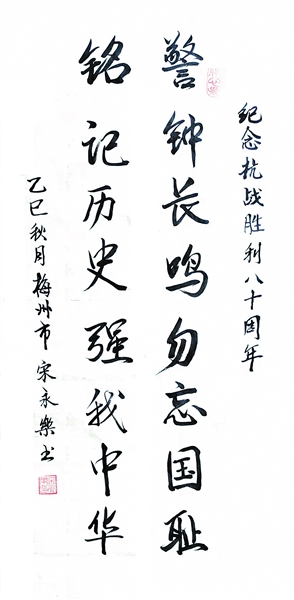 纪念抗战胜利八十周年
警钟长鸣勿忘国耻
铭记历史强我中华
乙巳秋月梅州市宋永乐书